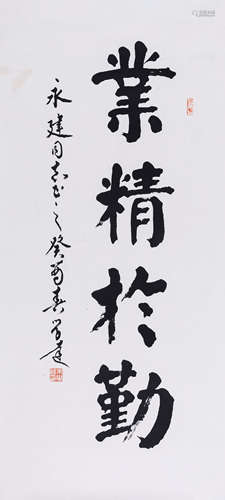 業精於勤
永建同志書之癸酉春